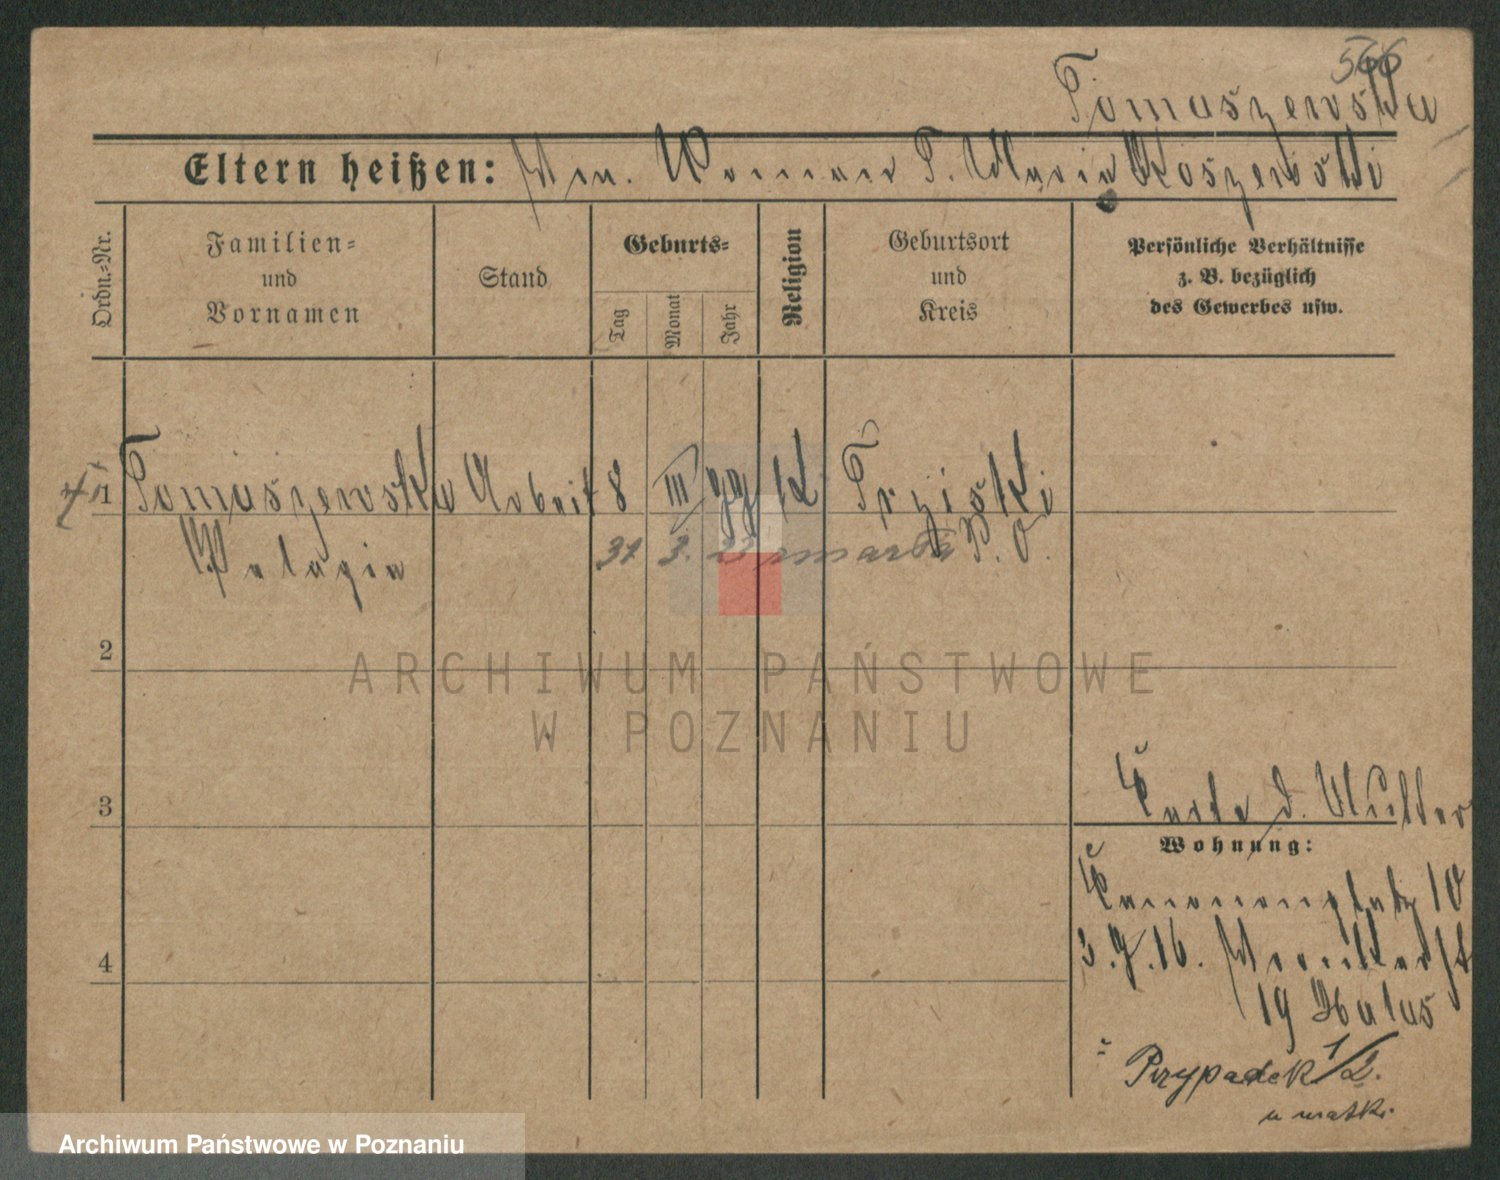 566
Tomaszewska
Eltern heißen: Roman T. Maria Koszewski
Ordn.=Nr.
Familien=
und
Vornamen
Stand
Geburts=
Tag
Monat
Jahr
Religion
Geburtsort
und
Kreis
Persönliche Verhältnisse
z. B. bezüglich
des Gewerbes usw.
1 Tomaszewska Arbeit 8 III 99 K
Pelagia
31 3. 23 zmarła P. O.
2
3
4
Karte d. Mutter
Wohnung:
Kanonenplatz 10
3.9.16.
19
Przypadek 1/2.
u matki
ARCHIWUM PAŃSTWOWE
W POZNANIU
Archiwum Państwowe w Poznaniu